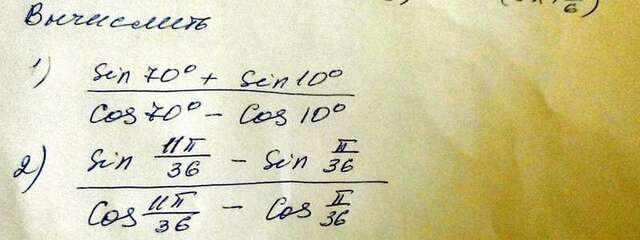 Вычислить
1) (sin 70° + sin 10°) / (cos 70° - cos 10°)
2) (sin 11π/36 - sin π/36) / (cos 11π/36 - cos π/36)